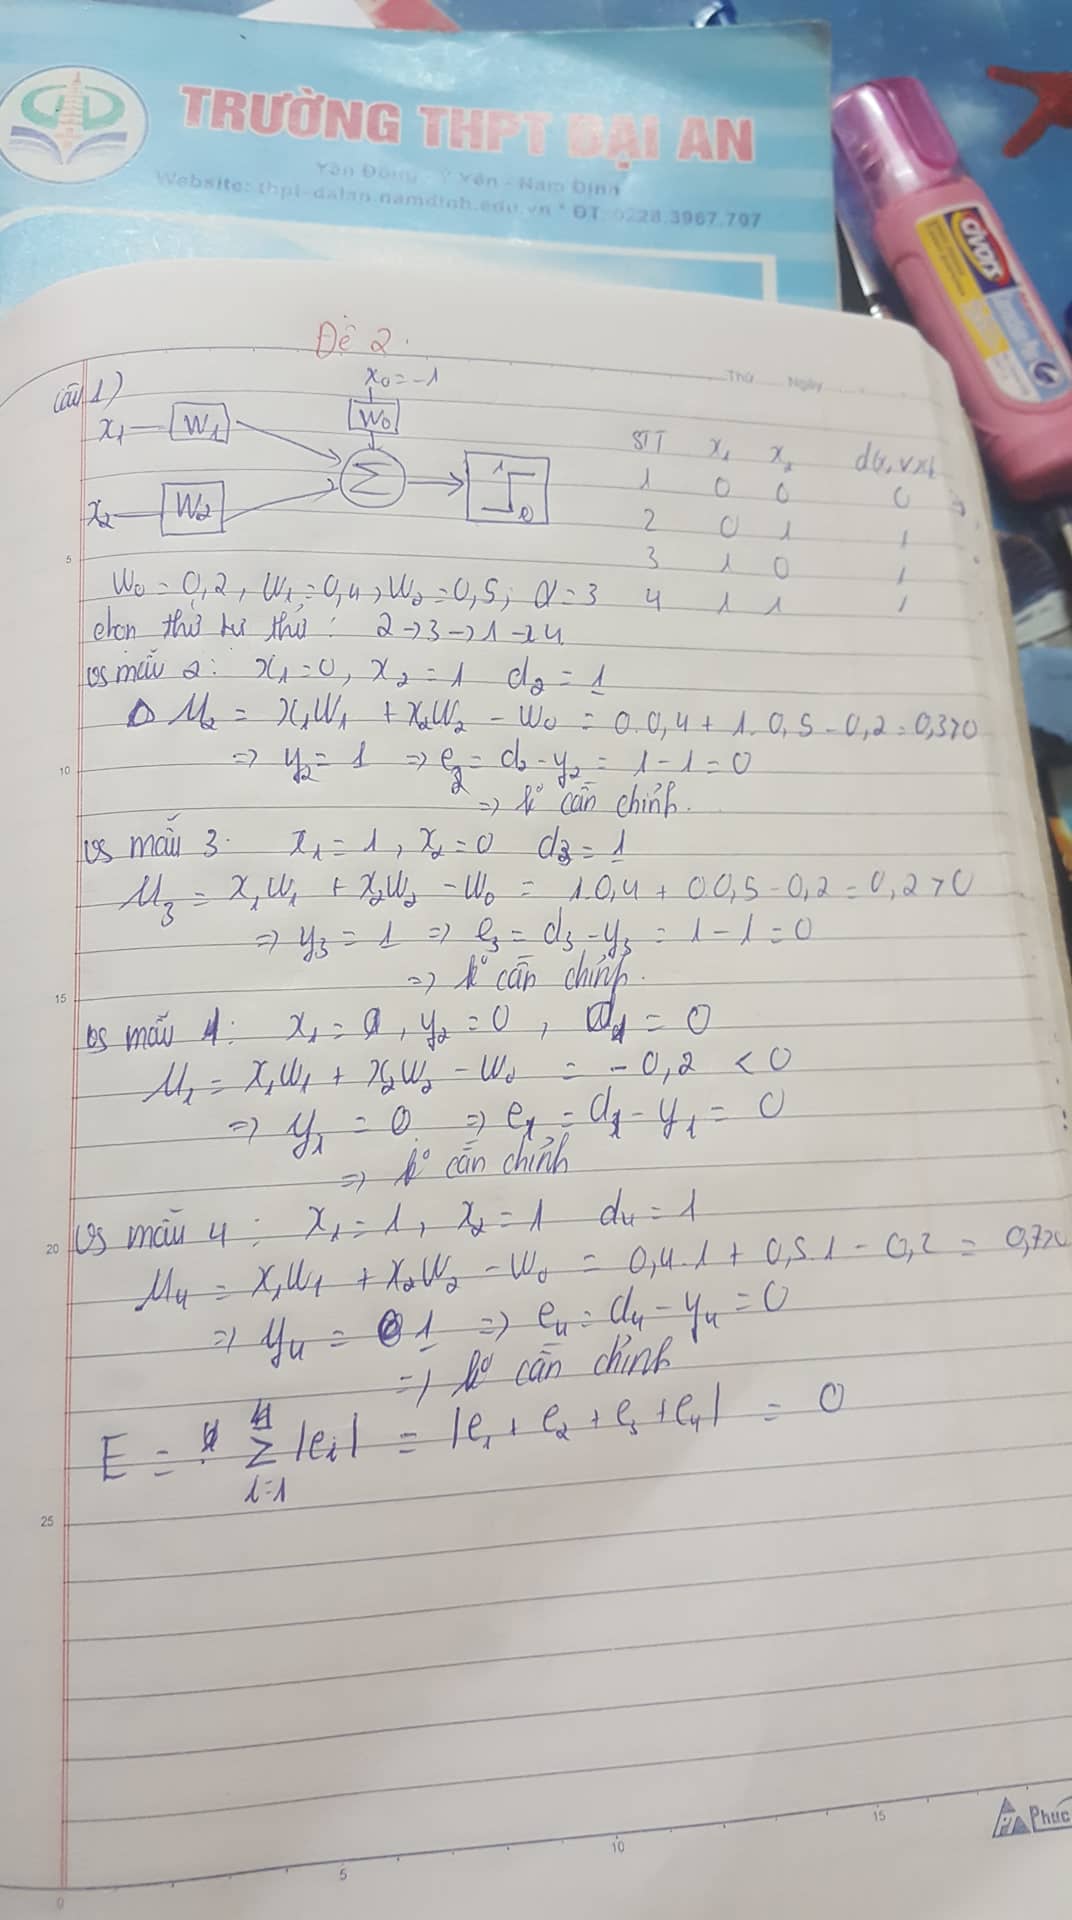 TRƯỜNG THPT ĐẠI AN
Yên Đồng - Ý Yên - Nam Định
Website: thpt-daian.namdinh.edu.vn * ĐT: 0228.3967.707
Đề 2.
Thứ Ngày
Câu 1)
x₀ = -1
W₀
x₁ W₁
Σ
1
0
x₂ W₂
STT x₁ x₂ d(x₁ v x₂)
1 0 0 0
2 0 1 1
3 1 0 1
4 1 1 1
W₀ = 0,2, W₁ = 0,4, W₂ = 0,5; α = 3
chọn thứ tự thử : 2 → 3 → 1 → 4
vs mẫu 2: x₁ = 0, x₂ = 1 d₂ = 1
M₂ = x₁W₁ + x₂W₂ - W₀ = 0.0,4 + 1.0,5 - 0,2 = 0,3 > 0
=> y₂ = 1 => e₂ = d₂ - y₂ = 1 - 1 = 0
=> k° cần chỉnh.
vs mẫu 3: x₁ = 1, x₂ = 0 d₃ = 1
M₃ = x₁W₁ + x₂W₂ - W₀ = 1.0,4 + 0.0,5 - 0,2 = 0,2 > 0
=> y₃ = 1 => e₃ = d₃ - y₃ = 1 - 1 = 0
=> k° cần chỉnh.
vs mẫu 1: x₁ = 0, y₂ = 0, d₁ = 0
M₁ = x₁W₁ + x₂W₂ - W₀ = -0,2 < 0
=> y₁ = 0 => e₁ = d₁ - y₁ = 0
=> k° cần chỉnh
vs mẫu 4: x₁ = 1, x₂ = 1 d₄ = 1
M₄ = x₁W₁ + x₂W₂ - W₀ = 0,4.1 + 0,5.1 - 0,2 = 0,7 > 0
=> y₄ = 1 => e₄ = d₄ - y₄ = 0
=> k° cần chỉnh
E = Σ⁴ᵢ₌₁ |eᵢ| = |e₁ + e₂ + e₃ + e₄| = 0
5
10
15
20
25
0 5 10 15
Phúc